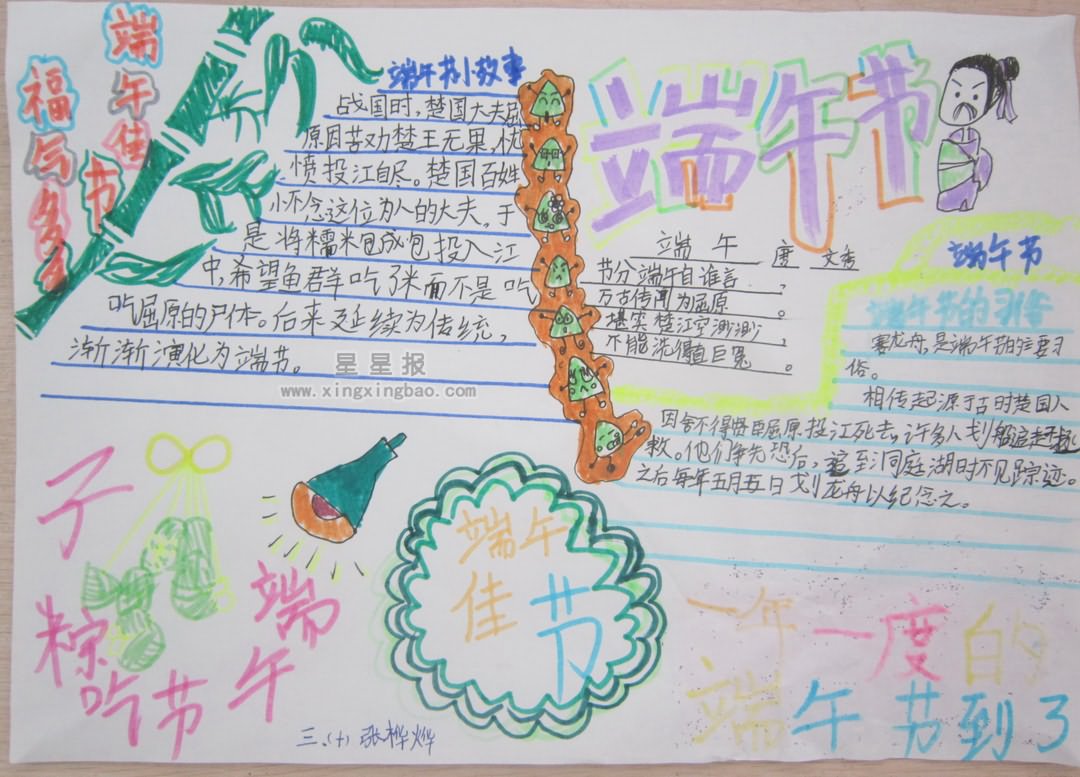 端午佳节
福气多多
端午节小故事
战国时,楚国大夫屈
原因苦劝楚王无果,忧
愤投江自尽。楚国百姓
小不念这位为人的大夫,于
是将糯米包成包投入江
中,希望鱼群吃了米而不是吃
吃屈原的尸体。后来延续为传统,
渐渐演化为端节。
星星报
www.xingxingbao.com
端午节
端午 唐 文秀
节分端午自谁言,
万古传闻为屈原。
堪笑楚江空渺渺,
不能洗得直臣冤。
端午节
端午节的习俗
赛龙舟,是端午节的主要习
俗。
相传起源于古时楚国人
因舍不得贤臣屈原投江死去,许多人划船追赶拯
救。他们争先恐后,追至洞庭湖时不见踪迹。
之后每年五月五日划龙舟以纪念之。
端午节吃粽子
端午
佳节
一年一度的
端午节到了
三、(十) 张桦烨